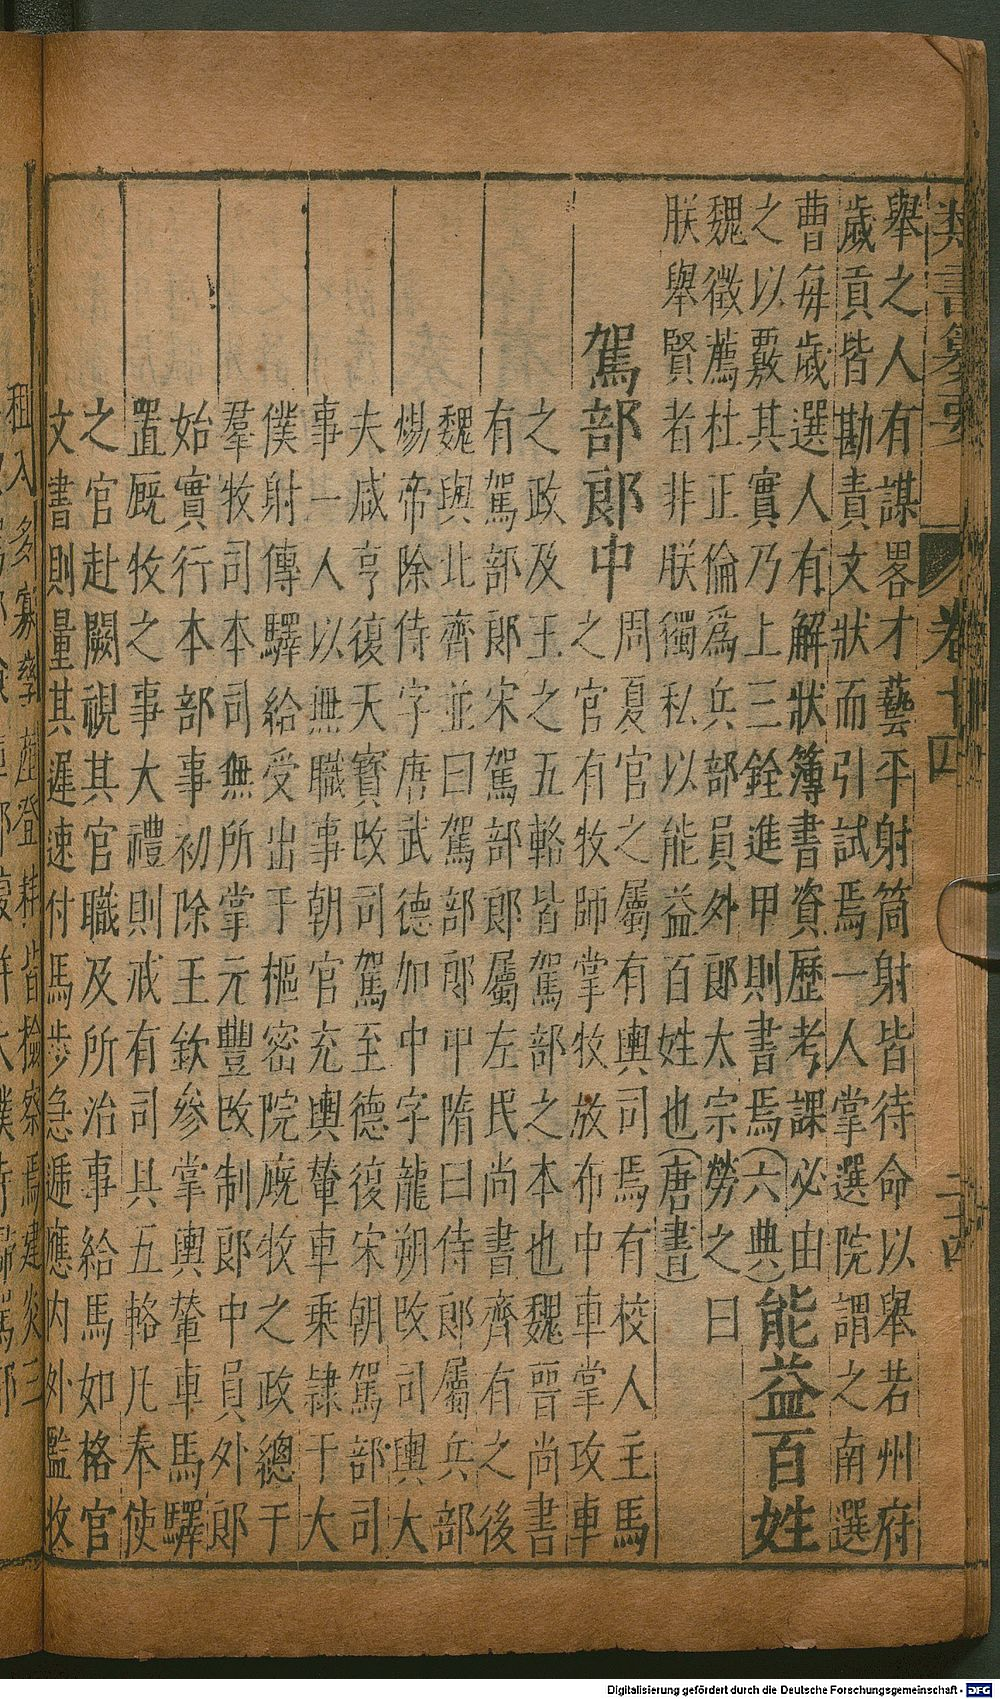 類書纂要 卷十四
舉之人有謀畧才藝平射筒射皆待命以舉若州府
歲貢皆勘責文狀而引試焉一人掌選院謂之南選
曹每歲選人有解狀簿書資歷考課必由
之以覈其實乃上三銓進甲則書焉(六典)
能益百姓
魏徵薦杜正倫為兵部員外郎太宗勞之曰
朕舉賢者非朕獨私以能益百姓也(唐書)
駕部郎中
周夏官之屬有輿司焉有校人主馬
之官有牧師掌牧放布中車掌攻車
之政及王之五輅皆駕部之本也魏晉尚書
有駕部郎宋駕部郎屬左民尚書齊有之後
魏與北齊並曰駕部郎中隋曰侍郎屬兵部
煬帝除侍字唐武德加中字龍朔改司輿大
夫咸亨復天寳改司駕至德復宋朝駕部司
事一人以無職事朝官充輿輦車乘隷于大
僕射傳驛給受出于樞密院廐牧之政總于
羣牧司本司無所掌元豐改制郎中員外郎
始實行本部事初除王欽參掌輿輦車馬驛
置厩牧之事大禮則戒有司具五輅凡奉使
之官赴闕視其官職及所治事給馬如格官
文書則量其遲速付馬步急遞應内外監牧
租入多寡孳產登耗皆檢察焉建炎三
Digitalisierung gefördert durch die Deutsche Forschungsgemeinschaft - DFG